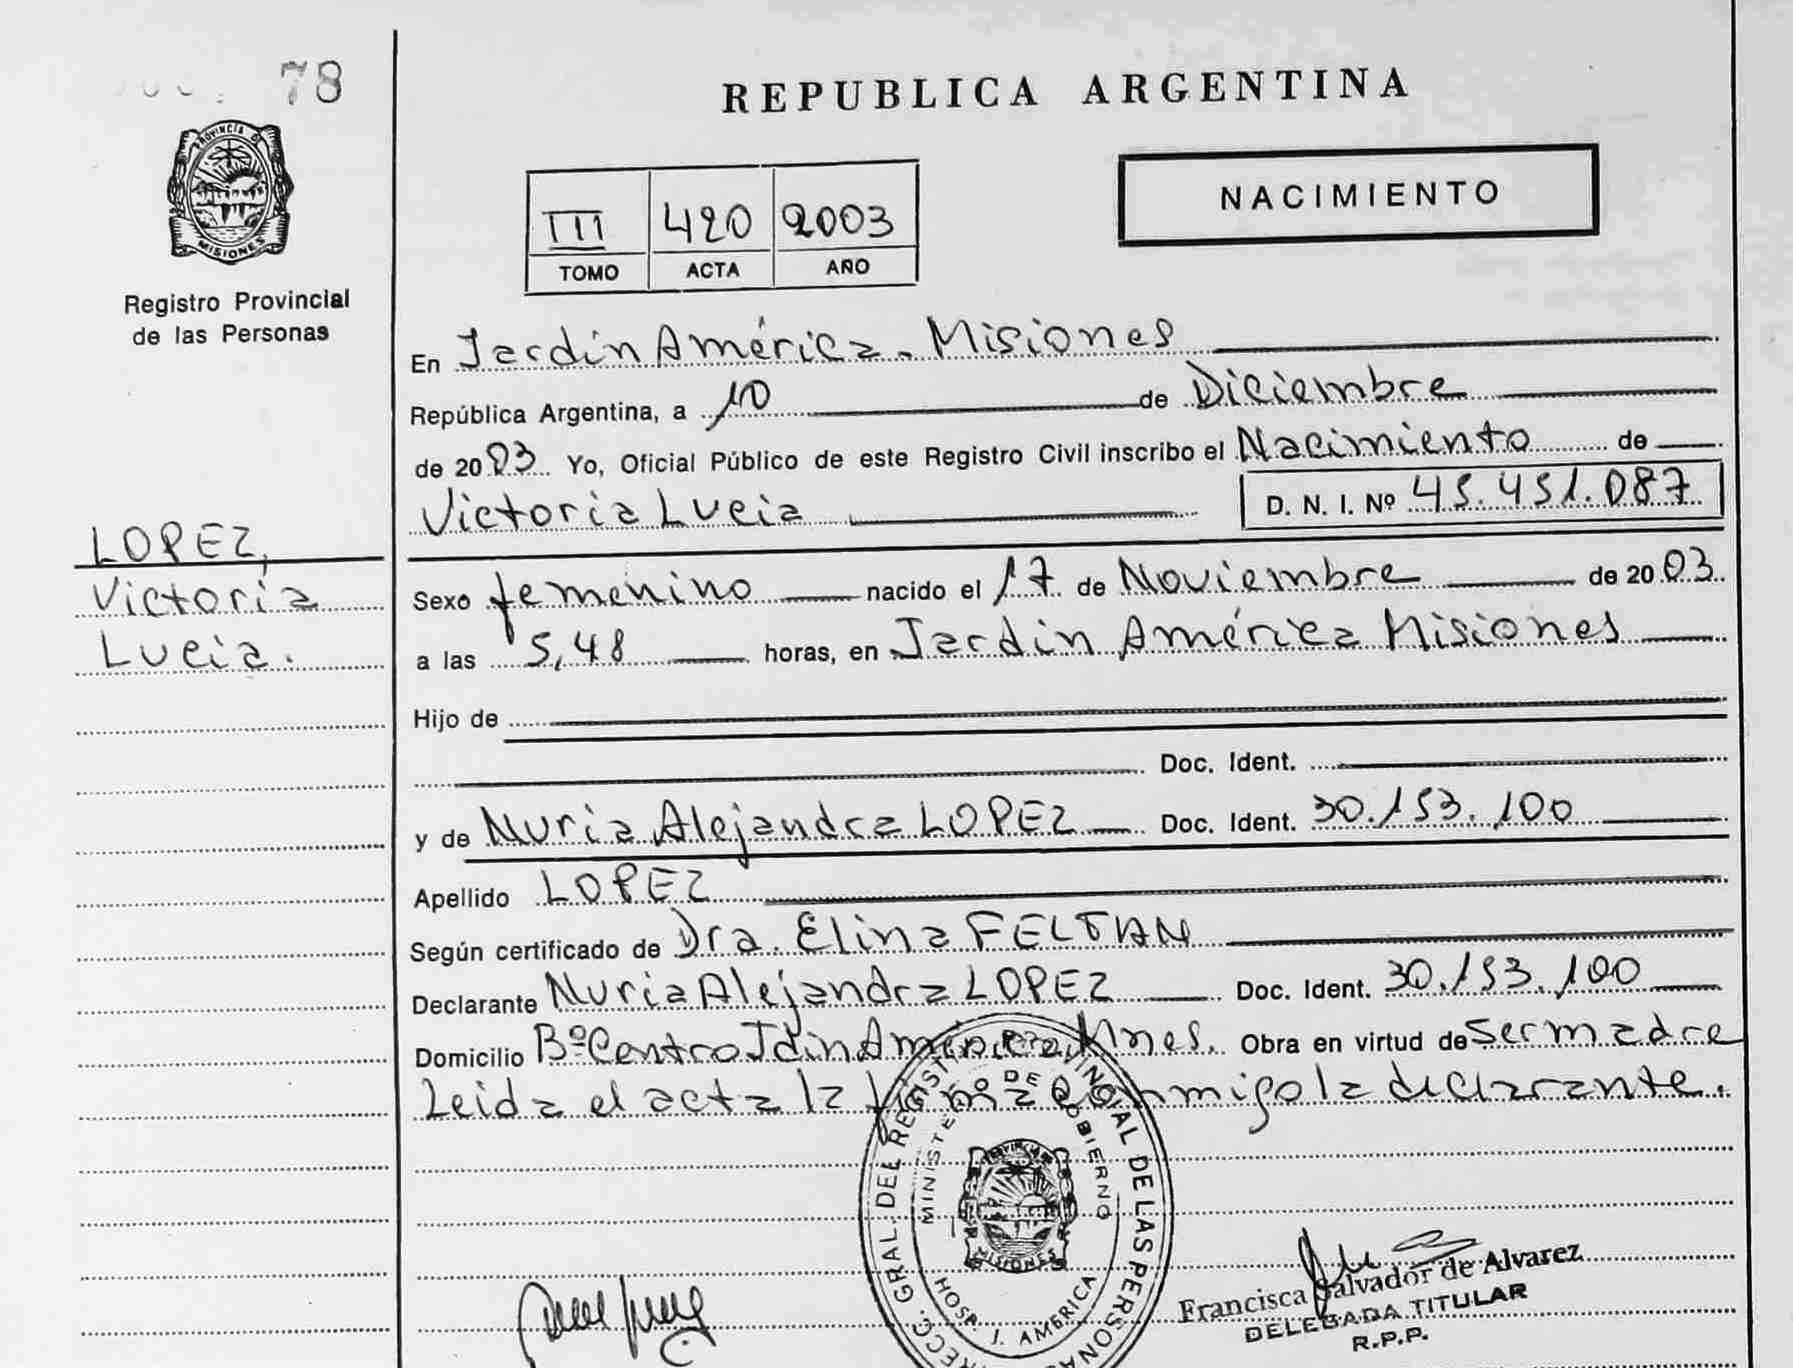 78
REPUBLICA ARGENTINA
PROVINCIA DE
MISIONES
Registro Provincial
de las Personas
III 420 2003
TOMO ACTA AÑO
NACIMIENTO
En Jardín América. Misiones
República Argentina, a 10 de Diciembre
de 2003 Yo, Oficial Público de este Registro Civil inscribo el Nacimiento de
Victoria Lucia D. N. I. Nº 45.451.087
LOPEZ,
Victoria
Lucia.
Sexo femenino nacido el 17 de Noviembre de 2003
a las 5,48 horas, en Jardín América Misiones
Hijo de
Doc. Ident.
y de Nuria Alejandra LOPEZ Doc. Ident. 30.153.100
Apellido LOPEZ
Según certificado de Dra. Elina FELTAN
Declarante Nuria Alejandra LOPEZ Doc. Ident. 30.153.100
Domicilio Bº Centro Jdín América Mnes. Obra en virtud de ser madre
Leida el acta la firma conmigo la declarante.
DIRECC. GRAL. DEL REGISTRO PROVINCIAL DE LAS PERSONAS
MINISTERIO DE GOBIERNO
MISIONES
HOSP. J. AMERICA
Francisca Salvador de Alvarez
DELEGADA TITULAR
R.P.P.